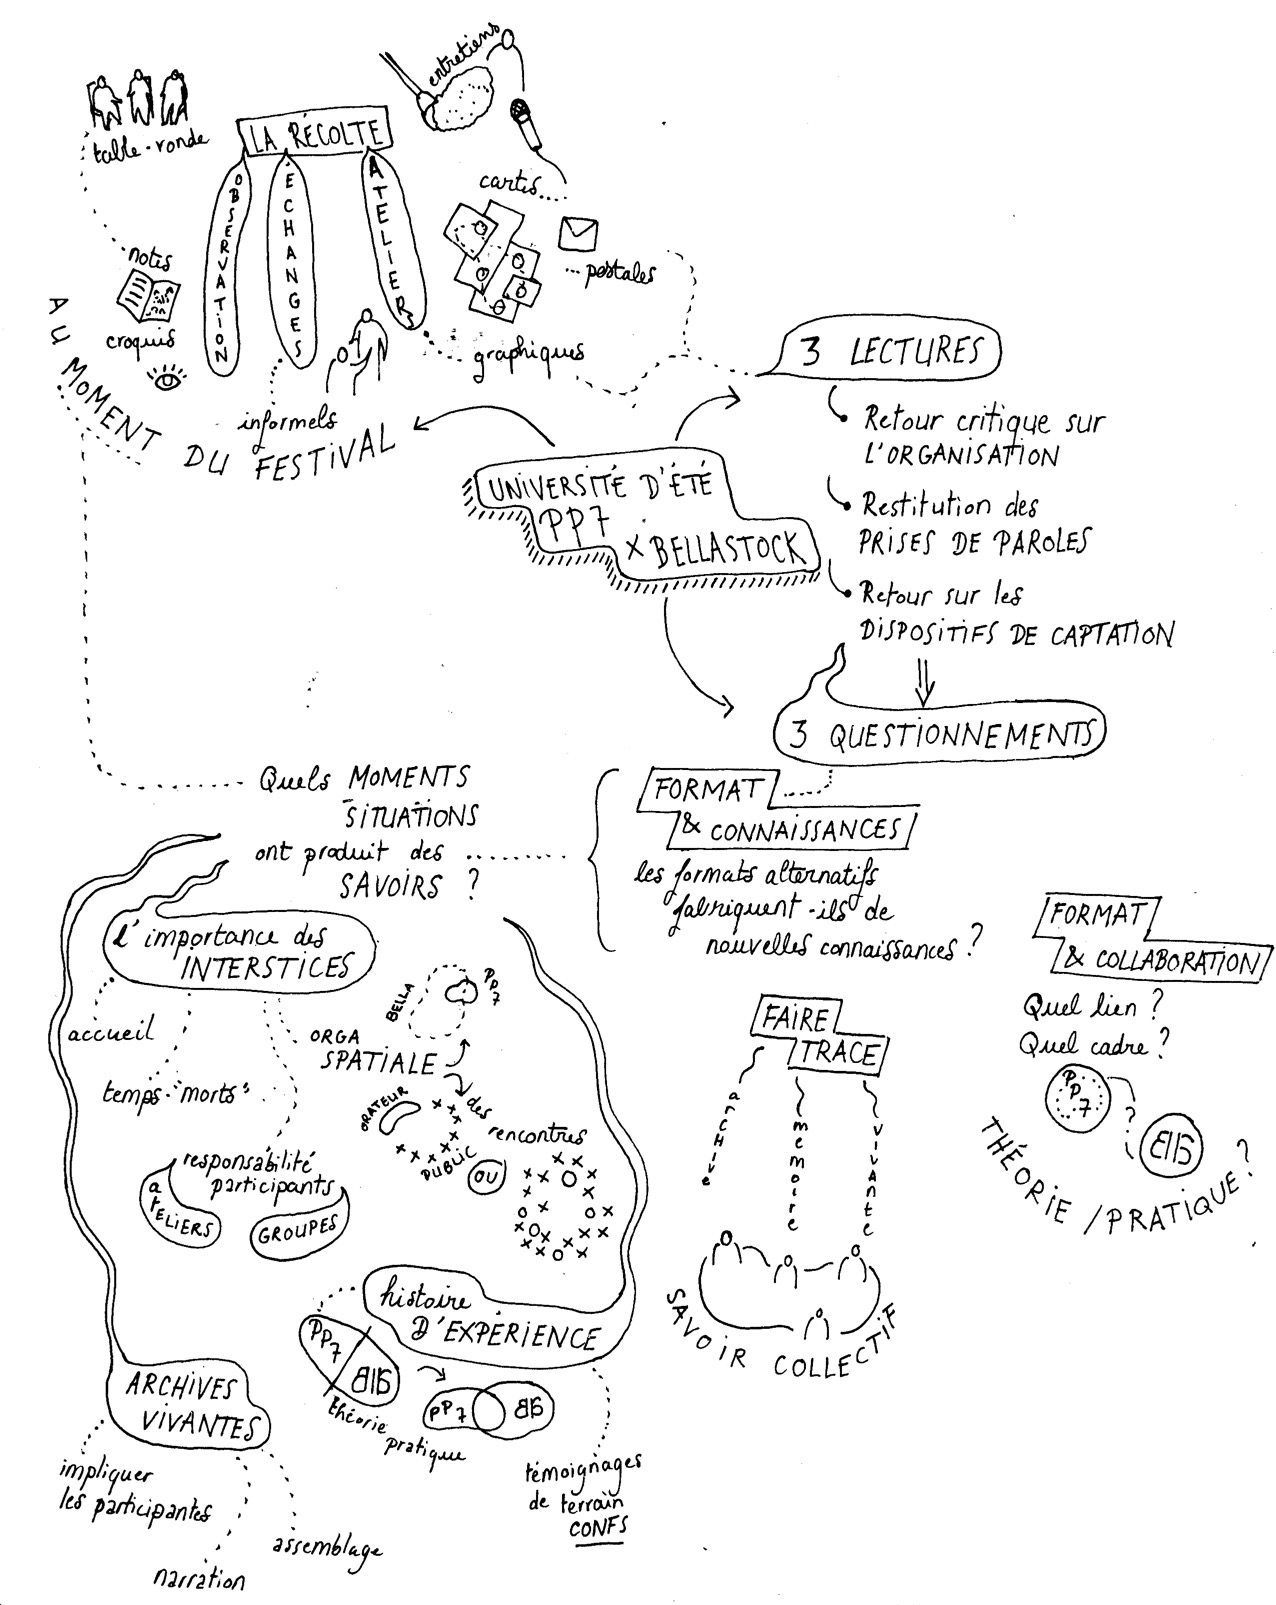 entretiens
table-ronde
LA RÉCOLTE
OBSERVATION
ÉCHANGES
ATELIERS
cartes....
...postales
notes
croquis
graphiques
informels
AU MOMENT DU FESTIVAL
3 LECTURES
Retour critique sur
L'ORGANISATION
Restitution des
PRISES DE PAROLES
Retour sur les
DISPOSITIFS DE CAPTATION
UNIVERSITÉ D'ÉTÉ
PP7
x BELLASTOCK
3 QUESTIONNEMENTS
Quels MOMENTS
SITUATIONS
ont produit des
SAVOIRS ?
FORMAT
& CONNAISSANCES
les formats alternatifs
fabriquent-ils de
nouvelles connaissances ?
FORMAT
& COLLABORATION
Quel lien ?
Quel cadre ?
PP7
?
THÉORIE / PRATIQUE ?
FAIRE
TRACE
archive
memoire
vivante
SAVOIR COLLECTIF
l'importance des
INTERSTICES
accueil
temps "morts"
responsabilité
participants
ateliers
GROUPES
ORGA
SPATIALE
BELLA
PP7
ORATEUR
PUBLIC
des
rencontres
OU
histoire
D'EXPÉRIENCE
PP7
théorie
pratique
PP7
témoignages
de terrain
CONFS
ARCHIVES
VIVANTES
impliquer
les participantes
narration
assemblage